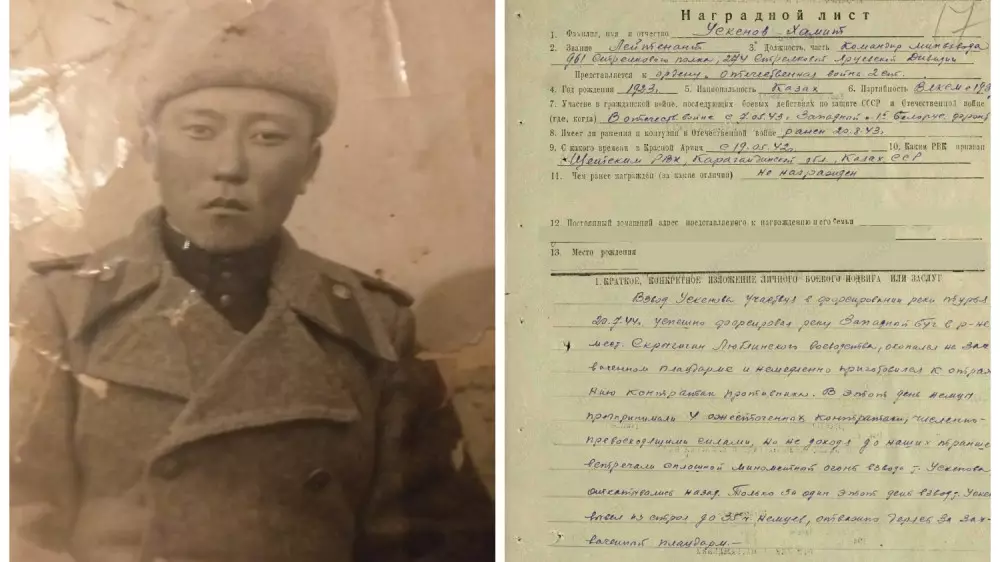 17
Наградной лист
1. Фамилия, имя и отчество Ускенов Хамит
2. Звание Лейтенант 3. Должность, часть Командир Минвзвода
961 Стрелкового полка, 274 Стрелковой Ярцевской Дивизии
Представляется к ордену „Отечественная война 2 ст.
4. Год рождения 1923г. 5. Национальность Казах 6. Партийность
7. Участие в гражданской войне, последующих боевых действиях по защите СССР и Отечественной войне
(где, когда) В отечеств. войне с 7.05.43г. Западной и 1й Белорус. фронт
8. Имеет ли ранения и контузии в Отечественной войне ранен 20.8.43г.
9. С какого времени в Красной Армии с 19.05.42г. 10. Каким РВК призван
Шетским РВК, Карагандинской обл. Казах. ССР
11. Чем ранее награжден (за какие отличия) не награжден
12. Постоянный домашний адрес представляемого к награждению и его семьи
13. Место рождения
I. КРАТКОЕ, КОНКРЕТНОЕ ИЗЛОЖЕНИЕ ЛИЧНОГО БОЕВОГО ПОДВИГА ИЛИ ЗАСЛУГ
Взвод Ускенова участвуя в форсировании реки
20.7.44г. успешно форсировал реку Западной Буг в р-не
мест. Люблинского воеводства, окопался на зах
ваченном плацдарме и немедленно приготовился к отраж
нию контратак противника. В этот день немцы
предпринимали 4 ожесточенных контратаки, численно-
превосходящими силами, но не доходя до наших транше
встречали сплошной минометной огонь взвода т. Ускенова
откатывались назад. Только за один этот день взвод т. Ускен
вывел из строя до 35ти немцев, отважно дерясь за зах-
ваченной плацдарм.—